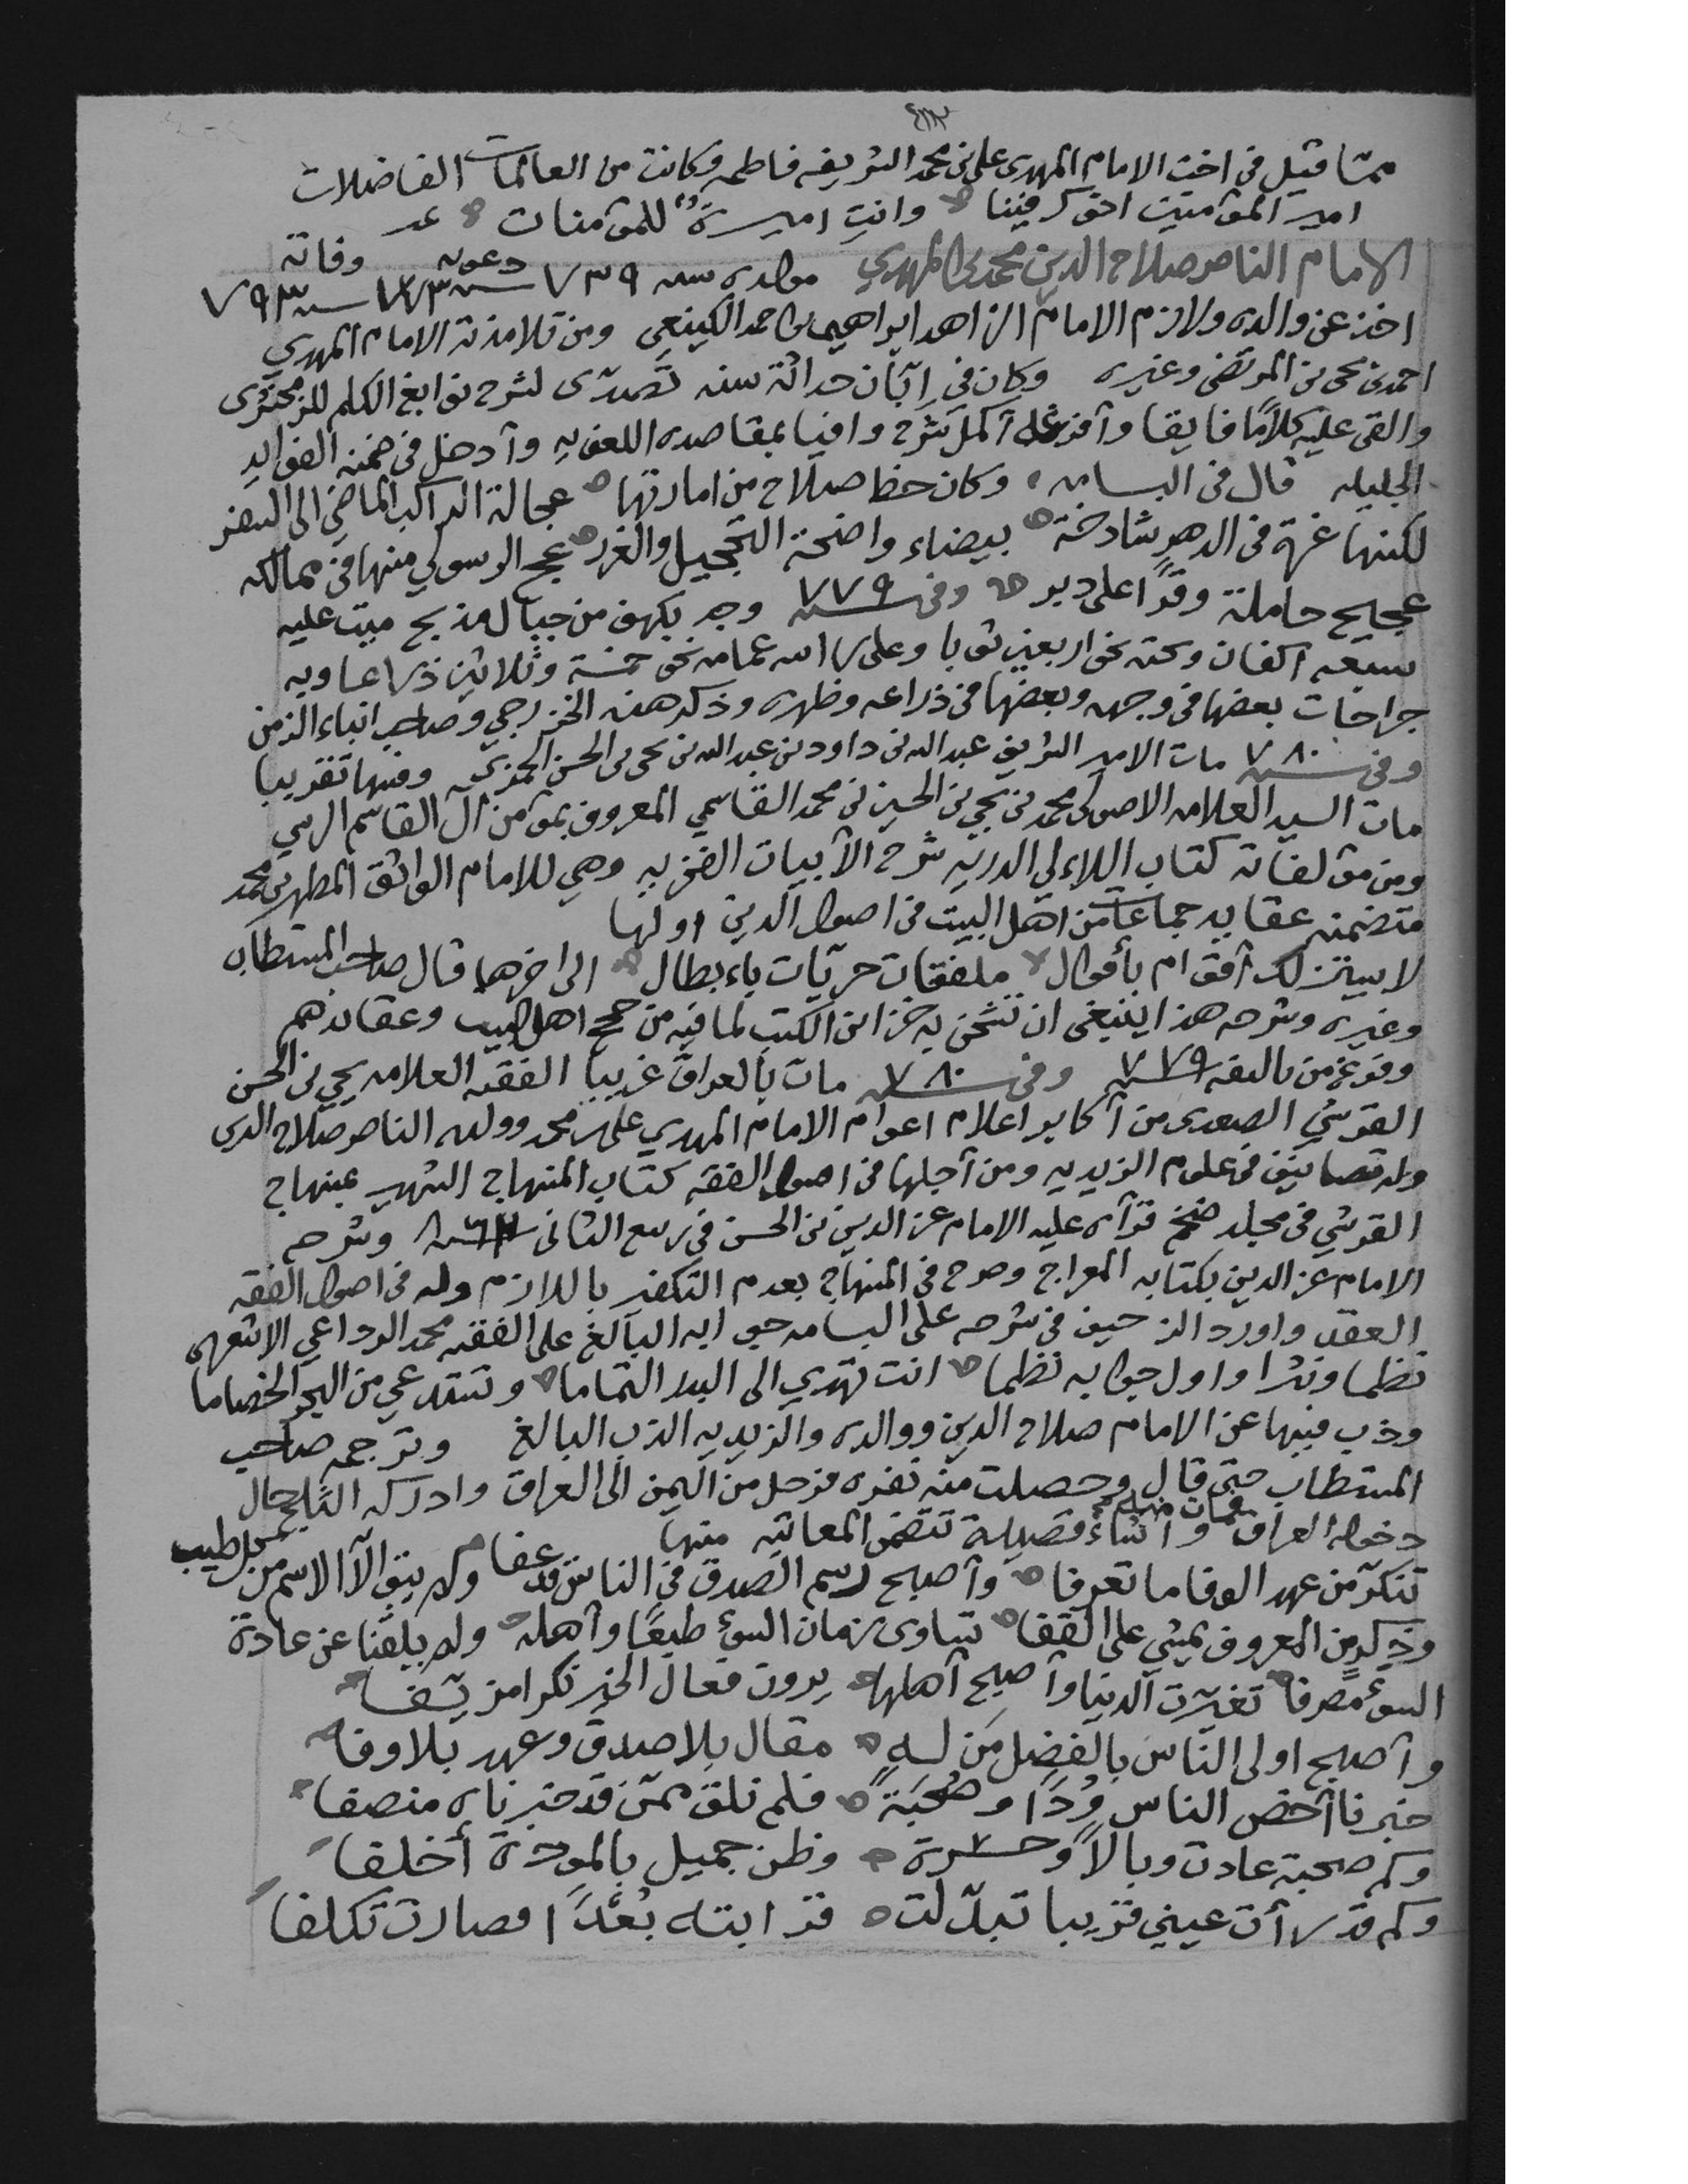 مما قيل في اخت الامام المهدي علي بن محمد الشريفه فاطمه وكانت من العالمات الفاضلات
امير المؤمنين اخوك فينا وانتِ اميرةٌ للمؤمنات
الامام الناصر صلاح الدين محمد بن المهدي مولده سنه ٧٣٩ دعوته سنه ٧٧٣ وفاته سنه ٧٩٣
اخذ عن والده ولازم الامام الزاهد ابراهيم بن احمد الكينعي ومن تلامذته الامام المهدي
احمد بن يحي بن المرتضى وغيره وكان في إبّان حداثة سنه تصدّى لشرح نوابغ الكلم للزمخشري
والقى عليه كلامًا فايقا وأفرغه أكمل شرح وافيا بمقاصده اللغويه وأدخل في ضمنه الفوايد
الجليله قال في البسامه وكان حظ صلاح من امارتها عجالة الراكب الماضي الى السفر
لكنها غرة في الدهر شادخة بيضاء واضحة التحجيل والغرر عج الرسولي منها في ممالكه
عجيج حاملة وقرًا على دبر وفي سنه ٧٧٩ وجد بكهف من جبال مذيح ميت عليه
سبعه اكفان وتحته نحو اربعين ثوبا وعلى راسه عمامه نحو خمسة وثلاثين ذراعا وبه
جراحات بعضها في وجهه وبعضها في ذراعه وظهره وذكر هذه الخزرجي وصاحب انباء الزمن
وفي سنه ٧٨٠ مات الامير الشريف عبدالله بن داود بن عبدالله بن يحي بن الحسن الحمزي وفيها تقريبا
مات السيد العلامه الاصولي محمد بن يحي بن الحسين بن محمد القاسمي المعروف من آل القاسم الرسي
ومن مؤلفاته كتاب اللاءلي الدريه شرح الأبيات الفخريه وهي للامام الواثق المطهر بن محمد
متضمنه عقايد جماعات من اهل البيت في اصول الدين اولها
لا يستزلك أقوام بأقوال ملفقات حريّات باءبطال الى اخرها قال صاحب المستطاب
وغيره وشرحه هذا ينبغي ان تشحن به خزاين الكتب لما فيه من حجج اهل البيت وعقائدهم
وفرغ من تاليفه سنه ٧٧٩ وفي سنه ٧٨٠ مات بالعراق غريبا الفقيه العلامه يحي بن الحسن
القرشي الصعدي من أكابر اعلام اعوام الامام المهدي علي بن محمد وولده الناصر صلاح الدين
وله تصانيف في علوم الزيديه ومن أجلها في اصول الفقه كتاب المنهاج الشهير بمنهاج
القرشي في مجلد ضخم قرأه عليه الامام عز الدين بن الحسن في ربيع الثاني وشرحه
الامام عز الدين بكتابه المعراج وصرح في المنهاج بعدم التكفير باللازم وله في اصول الفقه
العقد واورد الزحيف في شرحه على البسامه جوابه البالغ على الفقيه محمد الرداعي الاشعري
نظما ونثرا واول جوابه نظما انت تهدي الى البدر التماما وتستدعي من البحر الخصاما
وذب فيها عن الامام صلاح الدين ووالده والزيديه الذب البالغ وترجمه صاحب
المستطاب حتى قال وحصلت منه نفره فرحل من اليمن الى العراق وادركه الثلج حال
دخوله العراق فمات وأنشاء قصيدة تتضمن المعاتبه منها
تنكّر من عهد الوفا ما تعرفا وأصبح رسم الصدق في الناس قد عفا ولم يبق الاّ الاسم من كل طيب
وذكرٍ من المعروف يمشي على القفا تساوى زمان السوءِ طبعًا وأهله ولم يلفنا عن عادة
السوء مصرفا تغيّرت الدنيا وأصبح أهلها يرون فعال الخير نكرا
وأصبح اولى الناس بالفضل مَن له مقال بلا صدق وعهد بلا وفا
خبرنا أخص الناس وُدًا وصُحبَةً فلم نلق ممن قد خبرناه منصفا
وكم صحبة عادت وبالًا وحسرة وظن جميل بالمودة أخلفا
وكم قد رأت عيني قريبا تبدّلت قرابته بُعْدًا فصارت تكلفا